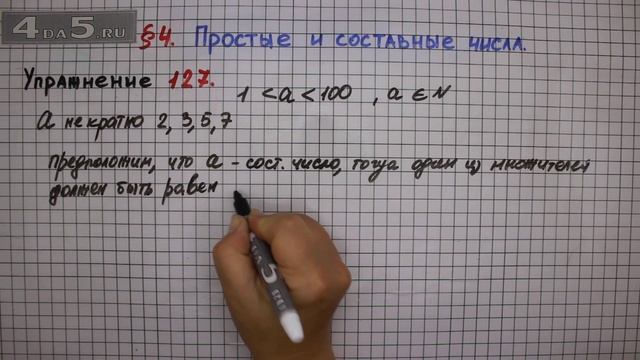 4DA5.RU
§4. Простые и составные числа.
Упражнение 127.
1 < a < 100 , a ∈ N
а не кратно 2, 3, 5, 7
предположим, что а - сост. число, тогда один из множителей
должен быть равен